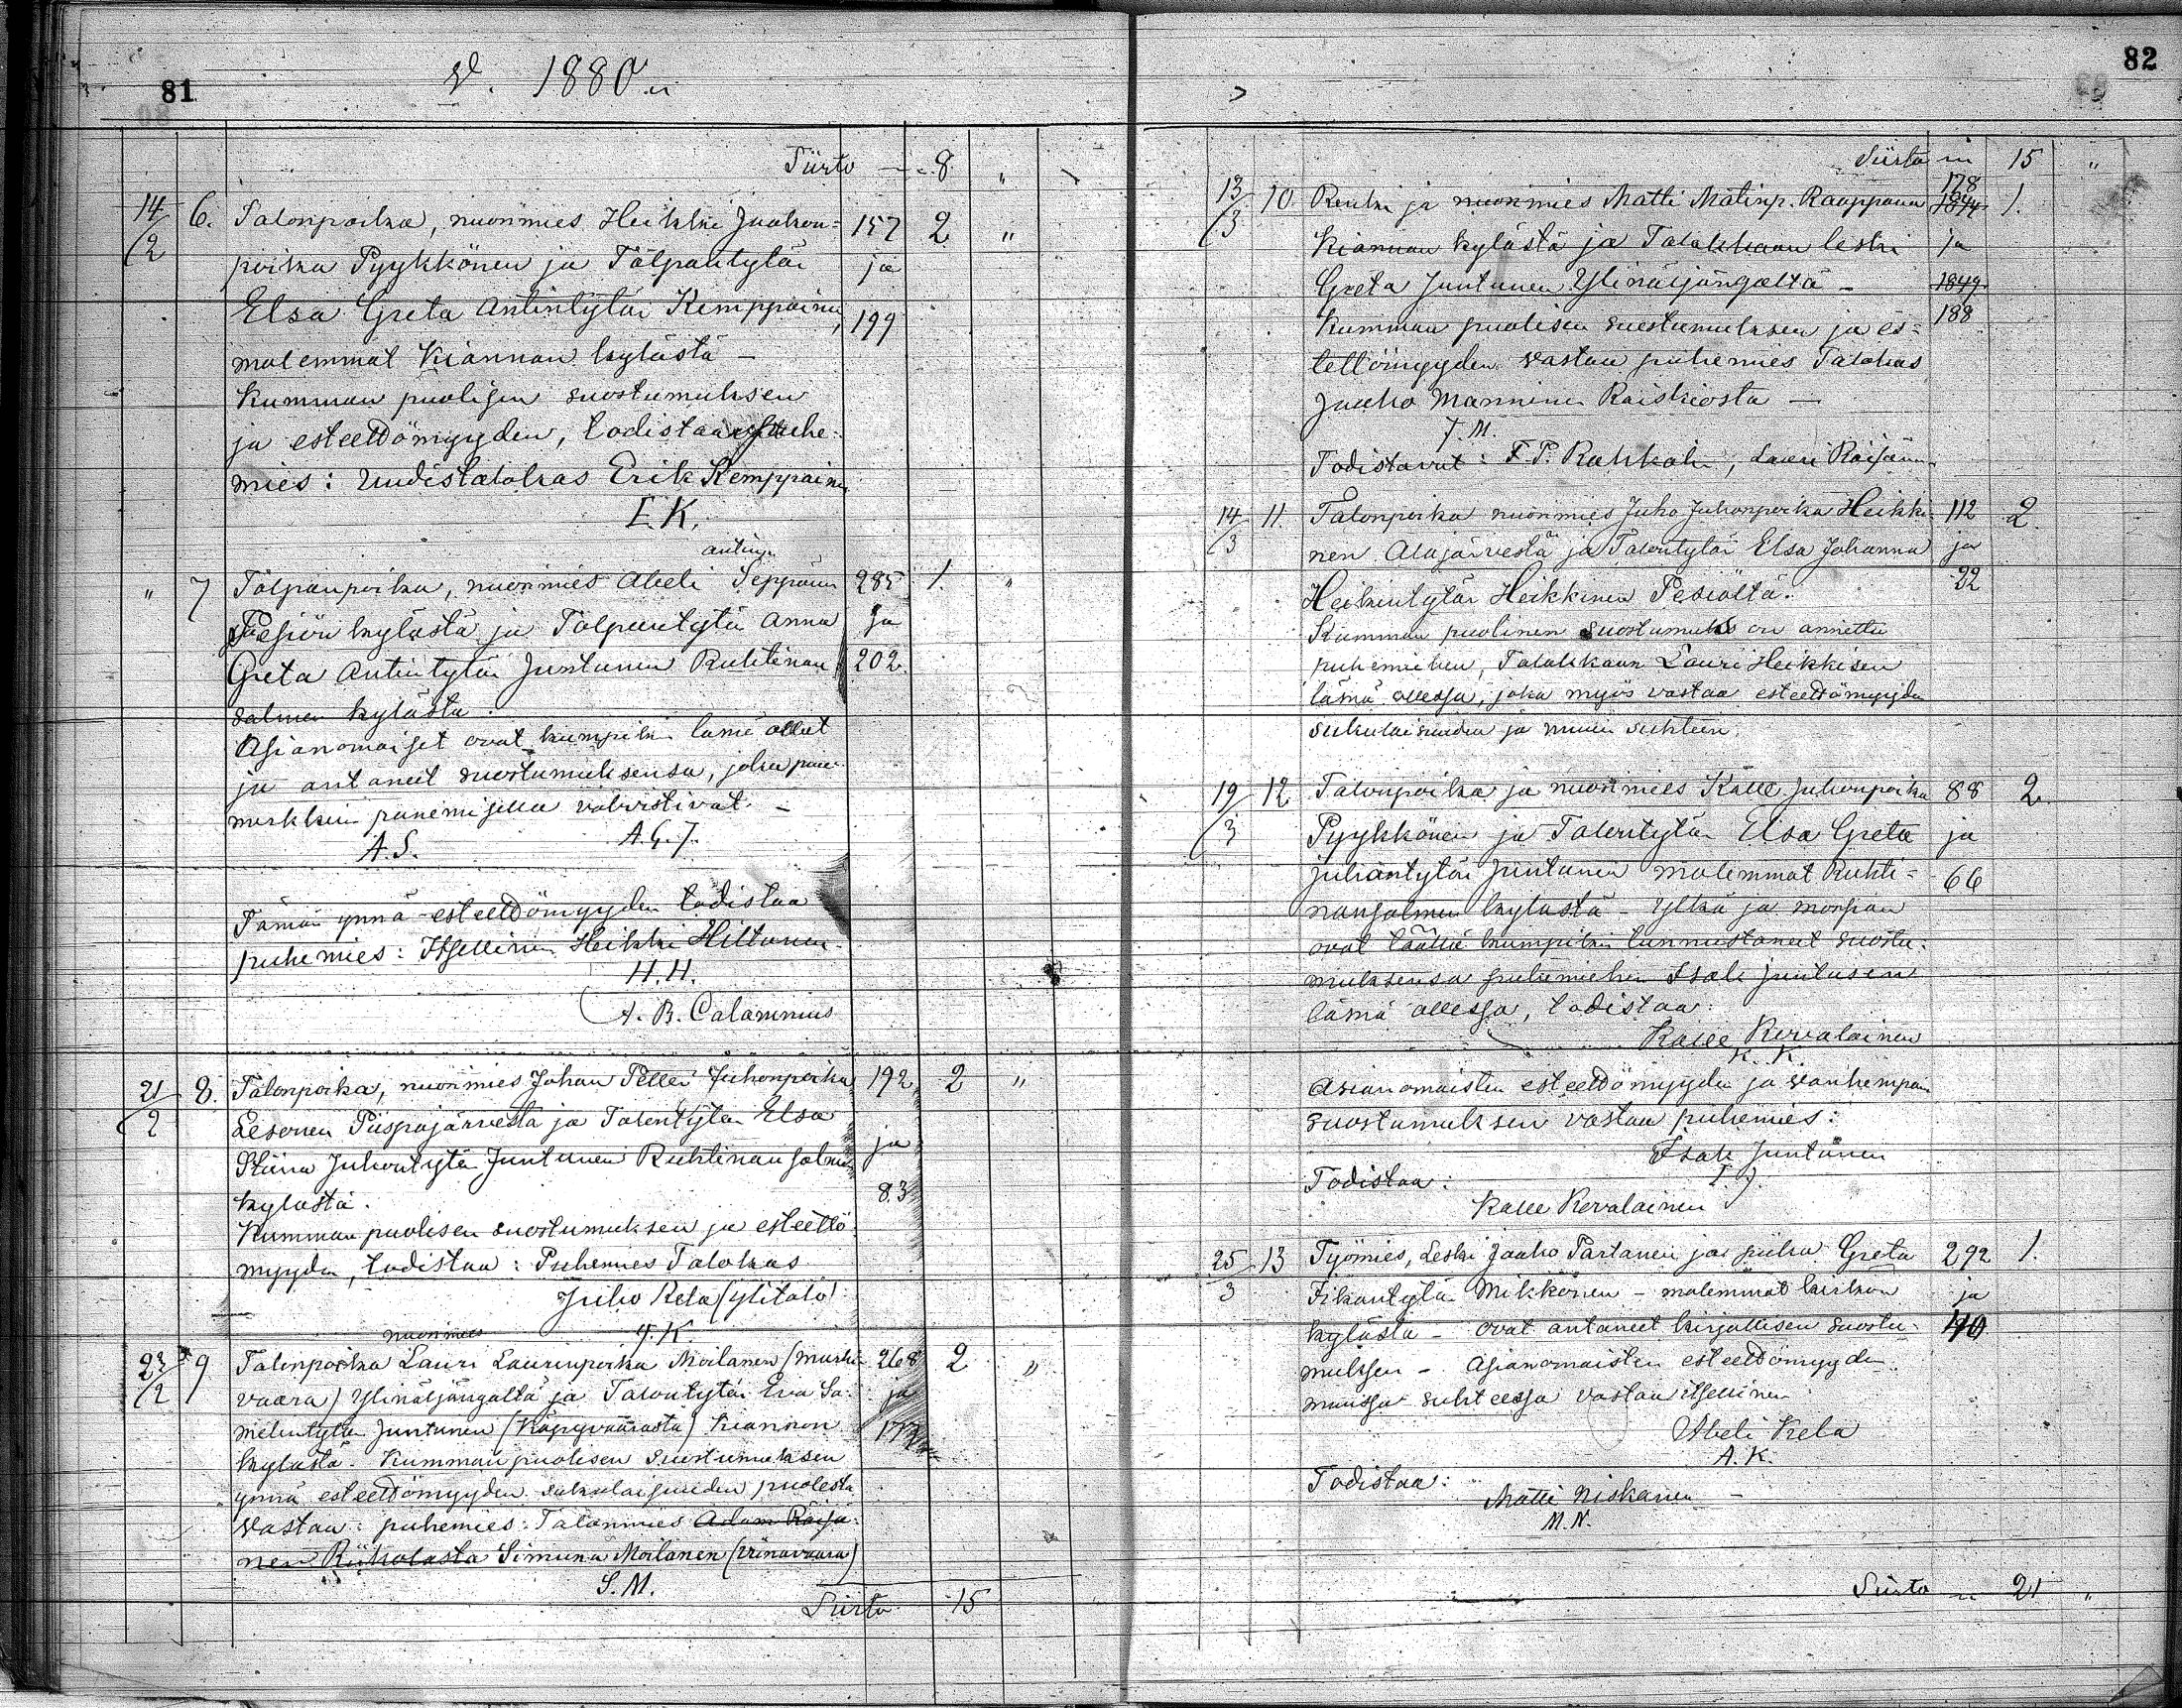 81
v. 1880.
Siirto — 8 "
14/2 6. Talonpoika, nuorimies Heikki Juhon= 157 2 "
poika Pyykkönen ja Tölpäntytär ja
Elsa Greta Antintytär Kemppainen, 199
molemmat Kiannan kylästä —
Kumman puolisen suostumuksen
ja esteettömyyden, todistaa puhe-
mies: Uudistalokas Erik Kemppainen
E.K.
antinp.
" 7 Tölpänpoika, nuorimies Abeli Seppänen 285 1. "
Pesiön kylästä ja Tölpäntytär Anna ja
Greta Antintytär Juntunen Ruhtinan 202.
salmen kylästä.
Asianomaiset ovat kumpikin läsnä olleet
ja antaneet suostumuksensa, jonka puu-
merkkein panemisella vahvistivat. —
A.S. A.G.J.
Tämän ynnä esteettömyyden todistaa
puhemies: Itsellinen Heikki Hiltunen.
H.H.
A. B. Calamnius
21/2 8. Talonpoika, nuorimies Johan Petter Juhonpoika 192 2 "
Lesonen Piispajärvestä ja Talontytär Elsa ja
Stiina Juhontytär Juntunen Ruhtinansalmen
kylästä. 83
Kumman puolisen suostumuksen ja esteettö
myyden, todistaa: Puhemies Talokas
Juho Kela (Ylitalo)
J.K.
nuorimies
23/2 9 Talonpoika Lauri Laurinpoika Moilanen (Murhi- 268 2 "
vaara) Ylinäljängältä ja Talontytär Eva Sa- ja
melintytär Juntunen (Käpyvaarasta) Kiannan 173
kylästä. Kumman puolisen suostumuksen
ynnä esteettömyyden sukulaisuuden puolesta
vastaa: puhemies: Talonmies Adam Räisä-
nen Riiholasta Simuna Moilanen (Viinavaara)
S.M.
Siirto 15
82
Siirto 15 "
13/3 10. Renki ja nuorimies Matti Matinp. Raappana 178 1.
Kiannan kylästä ja Talokkaan leski ja
Greta Juntunen Ylinäljängältä — 1849
Kumman puolisen suostumuksen ja es= 188
tettömyyden vastaa puhemies Talokas
Jaako Manninen Raiskiosta —
J.M.
Todistavat: F.P. Rahkola, Lauri Räisänen
14/3 11. Talonpoika nuorimies Juho Juhonpoika Heikki- 112 2.
nen Alajärvestä ja Talontytär Elsa Johanna ja
Heikintytär Heikkinen Pesiöltä. 22
Kumman puolinen suostumus on annettu
puhemiehen, Talokkaan Lauri Heikkisen
läsnä ollessa, joka myös vastaa esteettömyyden
sukulaisuuden ja muun suhteen.
19/3 12 Talonpoika ja nuorimies Kalle Juhonpoika 88 2.
Pyykkönen ja Talontytär Elsa Greta ja
Juhantytär Juntunen molemmat Ruhti= 66
nansalmen kylästä — Ylkä ja morsian
ovat täällä kumpikin tunnustaneet suostu-
muksensa puhemiehen Isak Juntusen
läsnä ollessa, todistaa:
Kalle Kervalainen
K. K.
Asianomaisten esteettömyyden ja vanhempain
suostumuksen vastaa puhemies:
Isak Juntunen
I J.
Todistaa:
Kalle Kervalainen
25/3 13 Työmies, Leski Jaako Partanen ja piika Greta 292 1.
Fikantytär Mikkönen — molemmat kirkon ja
kylästä — ovat antaneet kirjallisen suostu- 40
muksen — Asianomaisten esteettömyyden
muussa suhteessa vastaa itsellinen
Abeli Kela
A.K.
Todistaa:
Matti Niskanen —
M.N.
Siirto 21 "